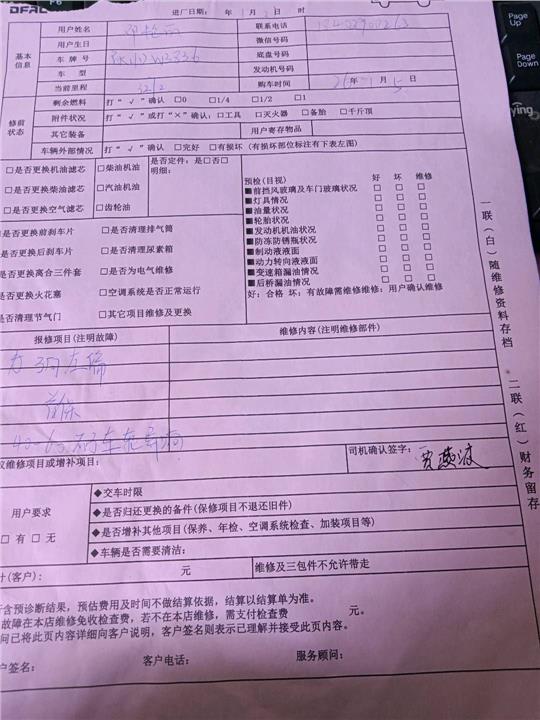 DFAC
进厂日期: 年 月 日 时
基本信息
用户姓名
联系电话
用户生日
微信号码
车 牌 号
底盘号码
车 型
发动机号码
当前里程 3212
购车时间 年 月 5 日
修前状态
剩余燃料 打“ √ ”确认 □0 □1/4 □1/2 □1
附件状况 打“ √ ”或打“×”确认: □工具 □灭火器 □备胎 □千斤顶
其它装备
用户寄存物品
车辆外部情况 打“ √ ”确认 □完好 □有损坏 (有损坏部位标注有下表左图)
□是否更换机油滤芯 □柴油机油
□是否更换柴油滤芯 □汽油机油
□是否更换空气滤芯 □齿轮油
是否定件: 是□否□
明细:
预检(目视) 好 坏 维修
■前挡风玻璃及车门玻璃状况 □ □ □
■灯具情况 □ □ □
■油量状况 □ □ □
■轮胎状况 □ □ □
■发动机机油状况 □ □ □
■防冻防锈瓶状况 □ □ □
■制动液液面 □ □ □
■动力转向液液面 □ □ □
■变速箱漏油情况 □ □ □
■后桥漏油情况 □ □ □
好: 合格 坏: 有故障需维修维修: 用户确认维修
是否更换前刹车片 □是否清理排气筒
是否更换后刹车片 □是否清理尿素箱
是否更换离合三件套 □是否为电气维修
是否更换火花塞 □空调系统是否正常运行
是否清理节气门 □其它项目维修及更换
报修项目(注明故障)
维修内容(注明维修部件)
首保
议维修项目或增补项目:
司机确认签字:
用户要求
□ 有 □ 无
◆交车时限
◆是否归还更换的备件(保修项目不退还旧件)
◆是否增补其他项目(保养、年检、空调系统检查、加装项目等)
◆车辆是否需要清洁:
计(客户): 元
维修及三包件不允许带走
含预诊断结果, 预估费用及时间不做结算依据, 结算以结算单为准。
故障在本店维修免收检查费, 若不在本店维修, 需支付检查费 元。
间已将此页内容详细向客户说明, 客户签名则表示已理解并接受此页内容。
户签名: 客户电话: 服务顾问:
一联(白)随维修资料存档
二联(红)财务留存
F6
Page Up
Page Down